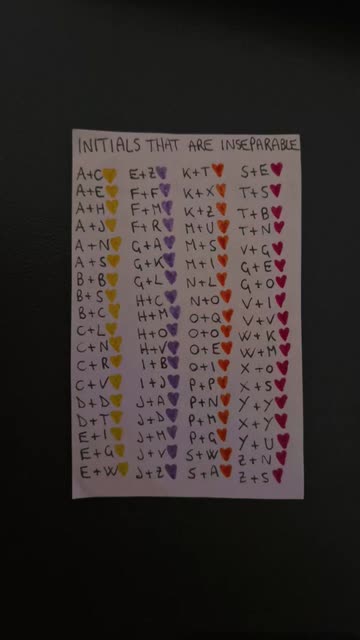 INITIALS THAT ARE INSEPARABLE
A+C
A+E
A+H
A+J
A+N
A+S
B+B
B+S
B+C
C+L
C+N
C+R
C+V
D+D
D+T
E+I
E+G
E+W
E+Z
F+F
F+M
F+R
G+A
G+K
G+L
H+C
H+M
H+O
H+V
I+B
I+J
J+A
J+D
J+M
J+V
J+Z
K+T
K+X
K+Z
M+U
M+S
M+I
N+L
N+O
O+Q
O+O
O+E
O+I
P+P
P+N
P+H
P+G
S+W
S+A
S+E
T+S
T+B
T+N
V+G
G+E
G+O
V+I
V+V
W+K
W+M
X+O
X+S
Y+Y
X+Y
Y+U
Z+N
Z+S